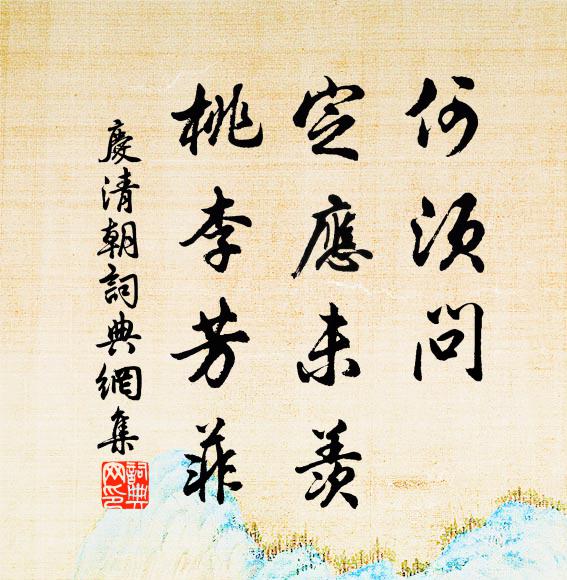 何須問
定應未羨
桃李芳菲
慶清朝詞典網集
詞典網印